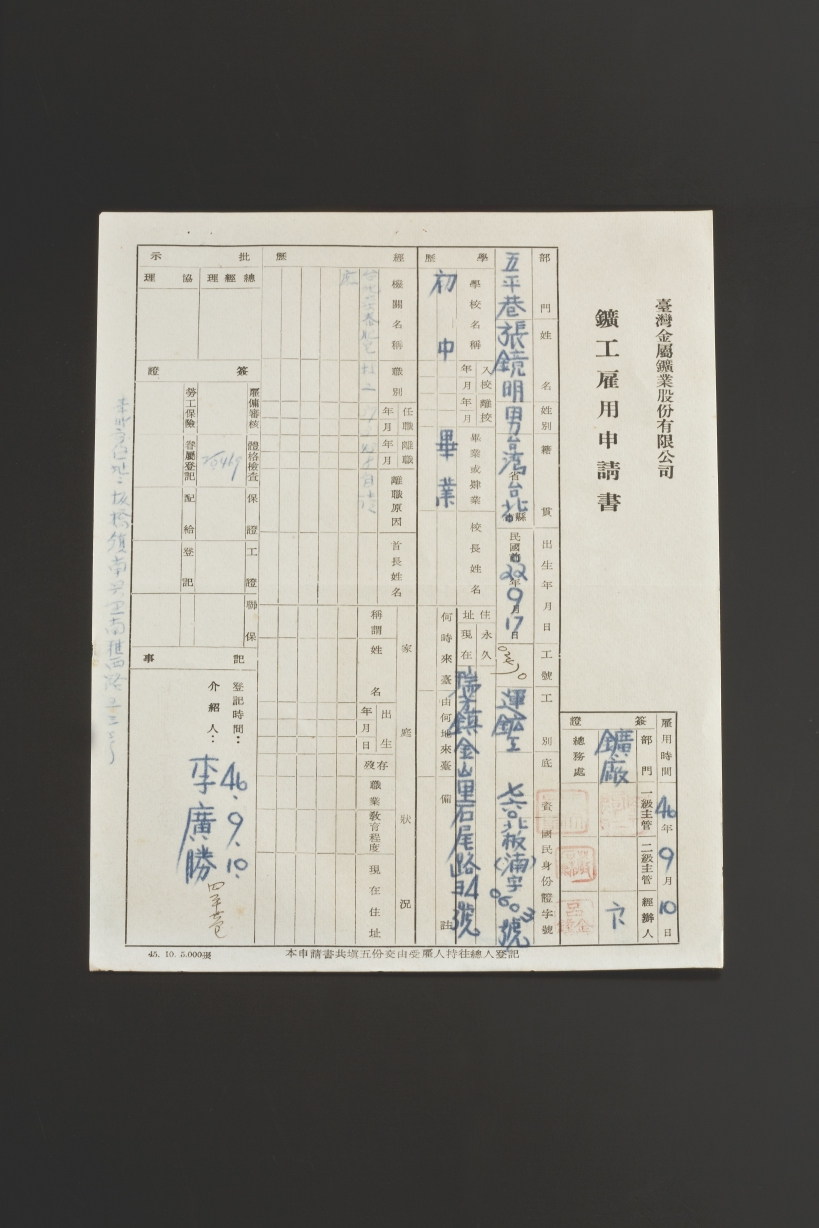 臺灣金屬鑛業股份有限公司
鑛工雇用申請書
雇用時間 46年9月10日
簽證
部門 一級主管 二級主管 經辦人
鑛廠
總務處
部門 姓名 姓別 籍貫 出生年月日 工號 工別 底資 國民身份證字號
五平巷 張鏡明 男 台灣省台北縣市 民國前22年9月17日 運鉱工 七六〇 北板(湳)字0603號
學歷
學校名稱 入校年月 離校年月 畢業或肄業 校長姓名
初中 畢業
住址 永久 現在
瑞芳鎮金山里石尾路34號
何時來臺 由何地來臺 備註
經歷
機關名稱 職別 任職年月 離職年月 離職原因 首長姓名
家庭狀況
稱謂 姓名 出生年月日 存歿 職業 教育程度 現在住址
批示
總經理 協理
簽證
雇傭審核 體格檢查 保證 工證 聯保
勞工保險 眷屬登記 配給 登記
記事
登記時間：46.9.10
介紹人：李廣勝
四平巷
本申請書共填五份交由受雇人持往總人登記
45. 10. 5.000張